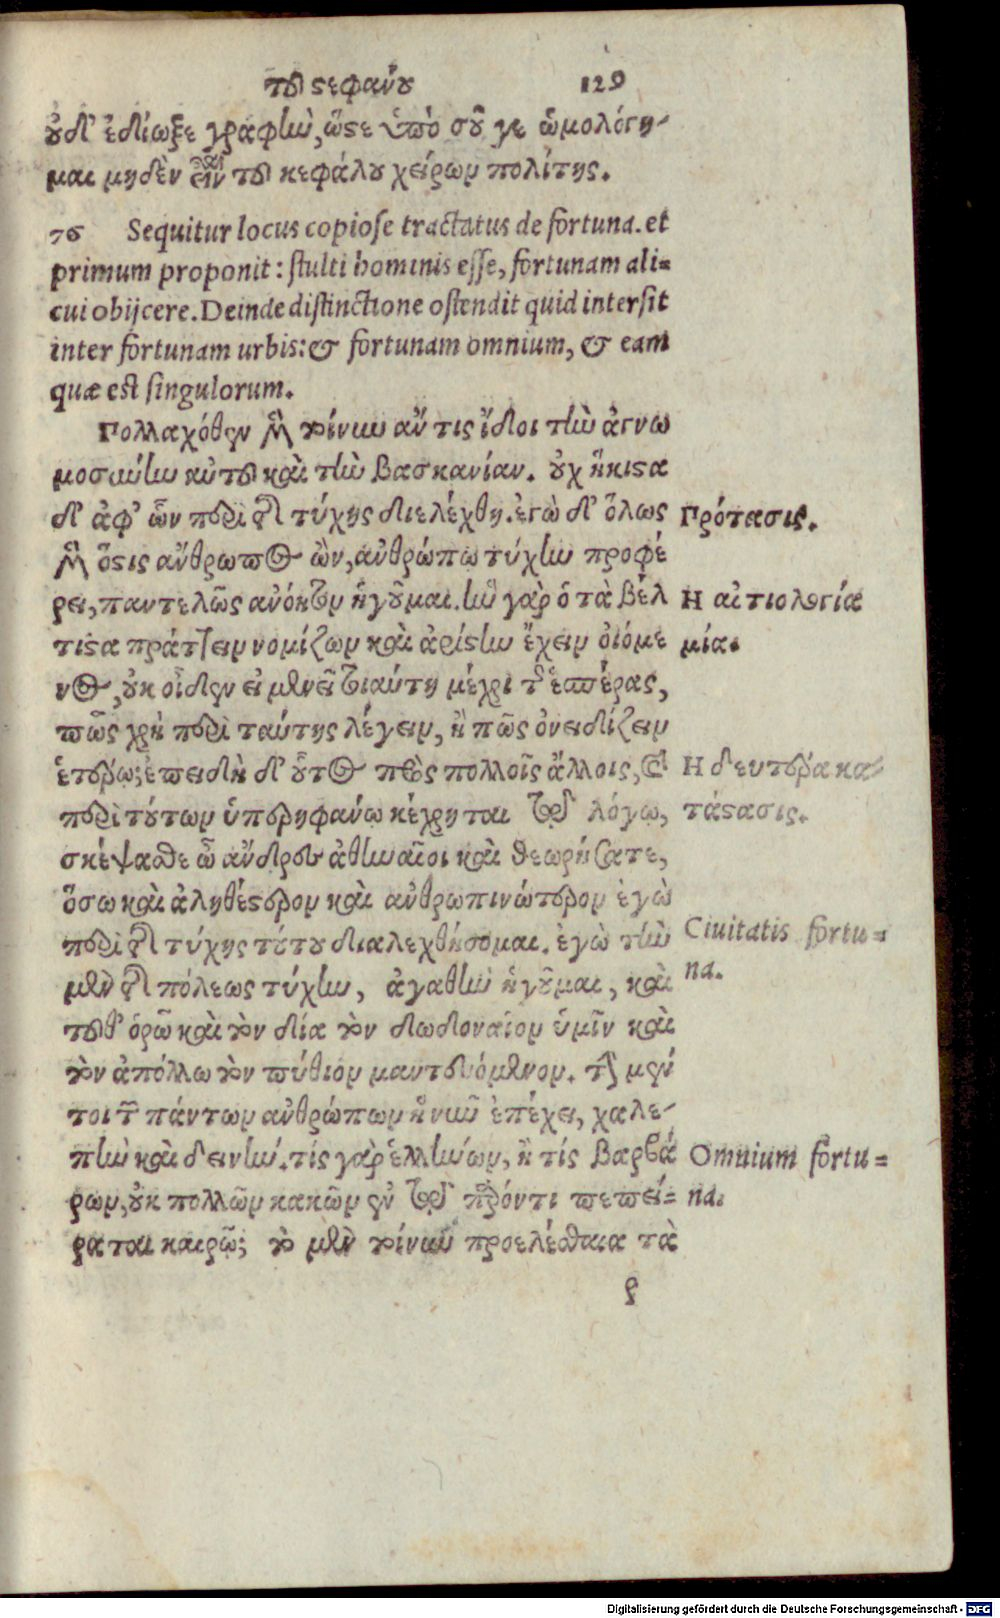 τοῦ στεφάνου 129
οὐδ' ἐδίωξε γραφὴν, ὥστε ὑπὸ σοῦ γε ὡμολόγη-
μαι μηδὲν εἶναι τοῦ κεφάλου χείρων πολίτης.
76 Sequitur locus copiose tractatus de fortuna. et
primum proponit: stulti hominis esse, fortunam ali=
cui obijcere. Deinde distinctione ostendit quid intersit
inter fortunam urbis: & fortunam omnium, & eam
quæ est singulorum.
Πολλαχόθεν μὲν τοίνυν ἄν τις ἴδοι τὴν ἀγνω
μοσύνην αὐτοῦ καὶ τὴν βασκανίαν. οὐχ ἥκιστα
δ' ἀφ' ὧν περὶ τῆς τύχης διελέχθη. ἐγὼ δ' ὅλως
Πρότασις.
μὲν ὅστις ἄνθρωπος ὢν, ἀνθρώπω τύχην προφέ
ρει, παντελῶς ἀνόητον ἡγοῦμαι. ἣν γὰρ ὁ τὰ βέλ
Η αἰτιολογία
τιστα πράττειν νομίζων καὶ ἀρίστην ἔχειν οἰόμε
μία.
νος, οὐκ οἶδεν εἰ μενεῖ τοιαύτη μέχρι τῆς ἑσπέρας,
πῶς χρὴ περὶ ταύτης λέγειν, ἢ πῶς ὀνειδίζειν
ἑτέρῳ; ἐπειδὴ δ' οὗτος πρὸς πολλοῖς ἄλλοις, καὶ
Η δευτέρα κα-
περὶ τούτων ὑπερηφάνω κέχρηται τῷ λόγω,
τάστασις.
σκέψασθε ὦ ἄνδρες ἀθηναῖοι καὶ θεωρήσατε,
ὅσω καὶ ἀληθέστερον καὶ ἀνθρωπινώτερον ἐγὼ
περὶ τῆς τύχης τούτου διαλεχθήσομαι. ἐγὼ τὴν
Ciuitatis fortu=
na.
μὲν τῆς πόλεως τύχην, ἀγαθὴν ἡγοῦμαι, καὶ
τοῦθ' ὁρῶ καὶ τὸν δία τὸν δωδοναῖον ὑμῖν καὶ
τὸν ἀπόλλω τὸν πύθιον μαντευόμενον. τὴν μέν
τοι τῶν πάντων ἀνθρώπων ἣ νῦν ἐπέχει, χαλε-
πὴν καὶ δεινήν. τίς γὰρ ἑλλήνων, ἢ τίς βαρβά
Omnium fortu=
ρων, οὐκ πολλῶν κακῶν ἐν τῷ παρόντι πεπεί=
na.
ραται καιρῷ; τὸ μὲν τοίνυν προελέσθαι τὰ
ρ
Digitalisierung gefördert durch die Deutsche Forschungsgemeinschaft - DFG